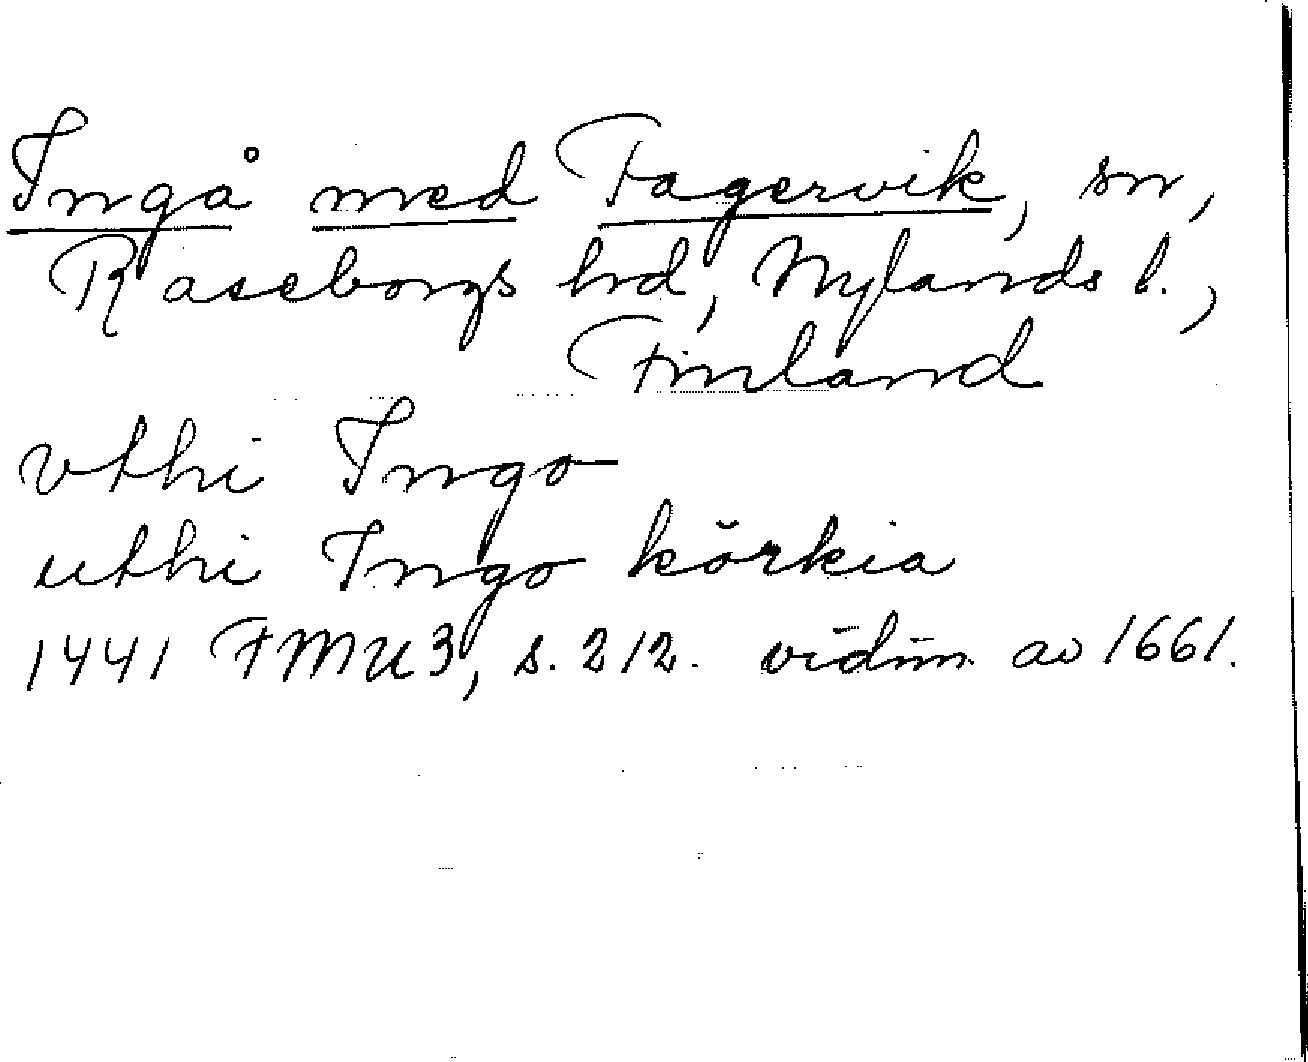 Ingå med Fagervik, sn,
Raseborgs hrd, Nylands l.,
Finland
vthi Ingo
uthi Ingo körkia
1441 FMU 3, s. 212. vidim. av 1661.